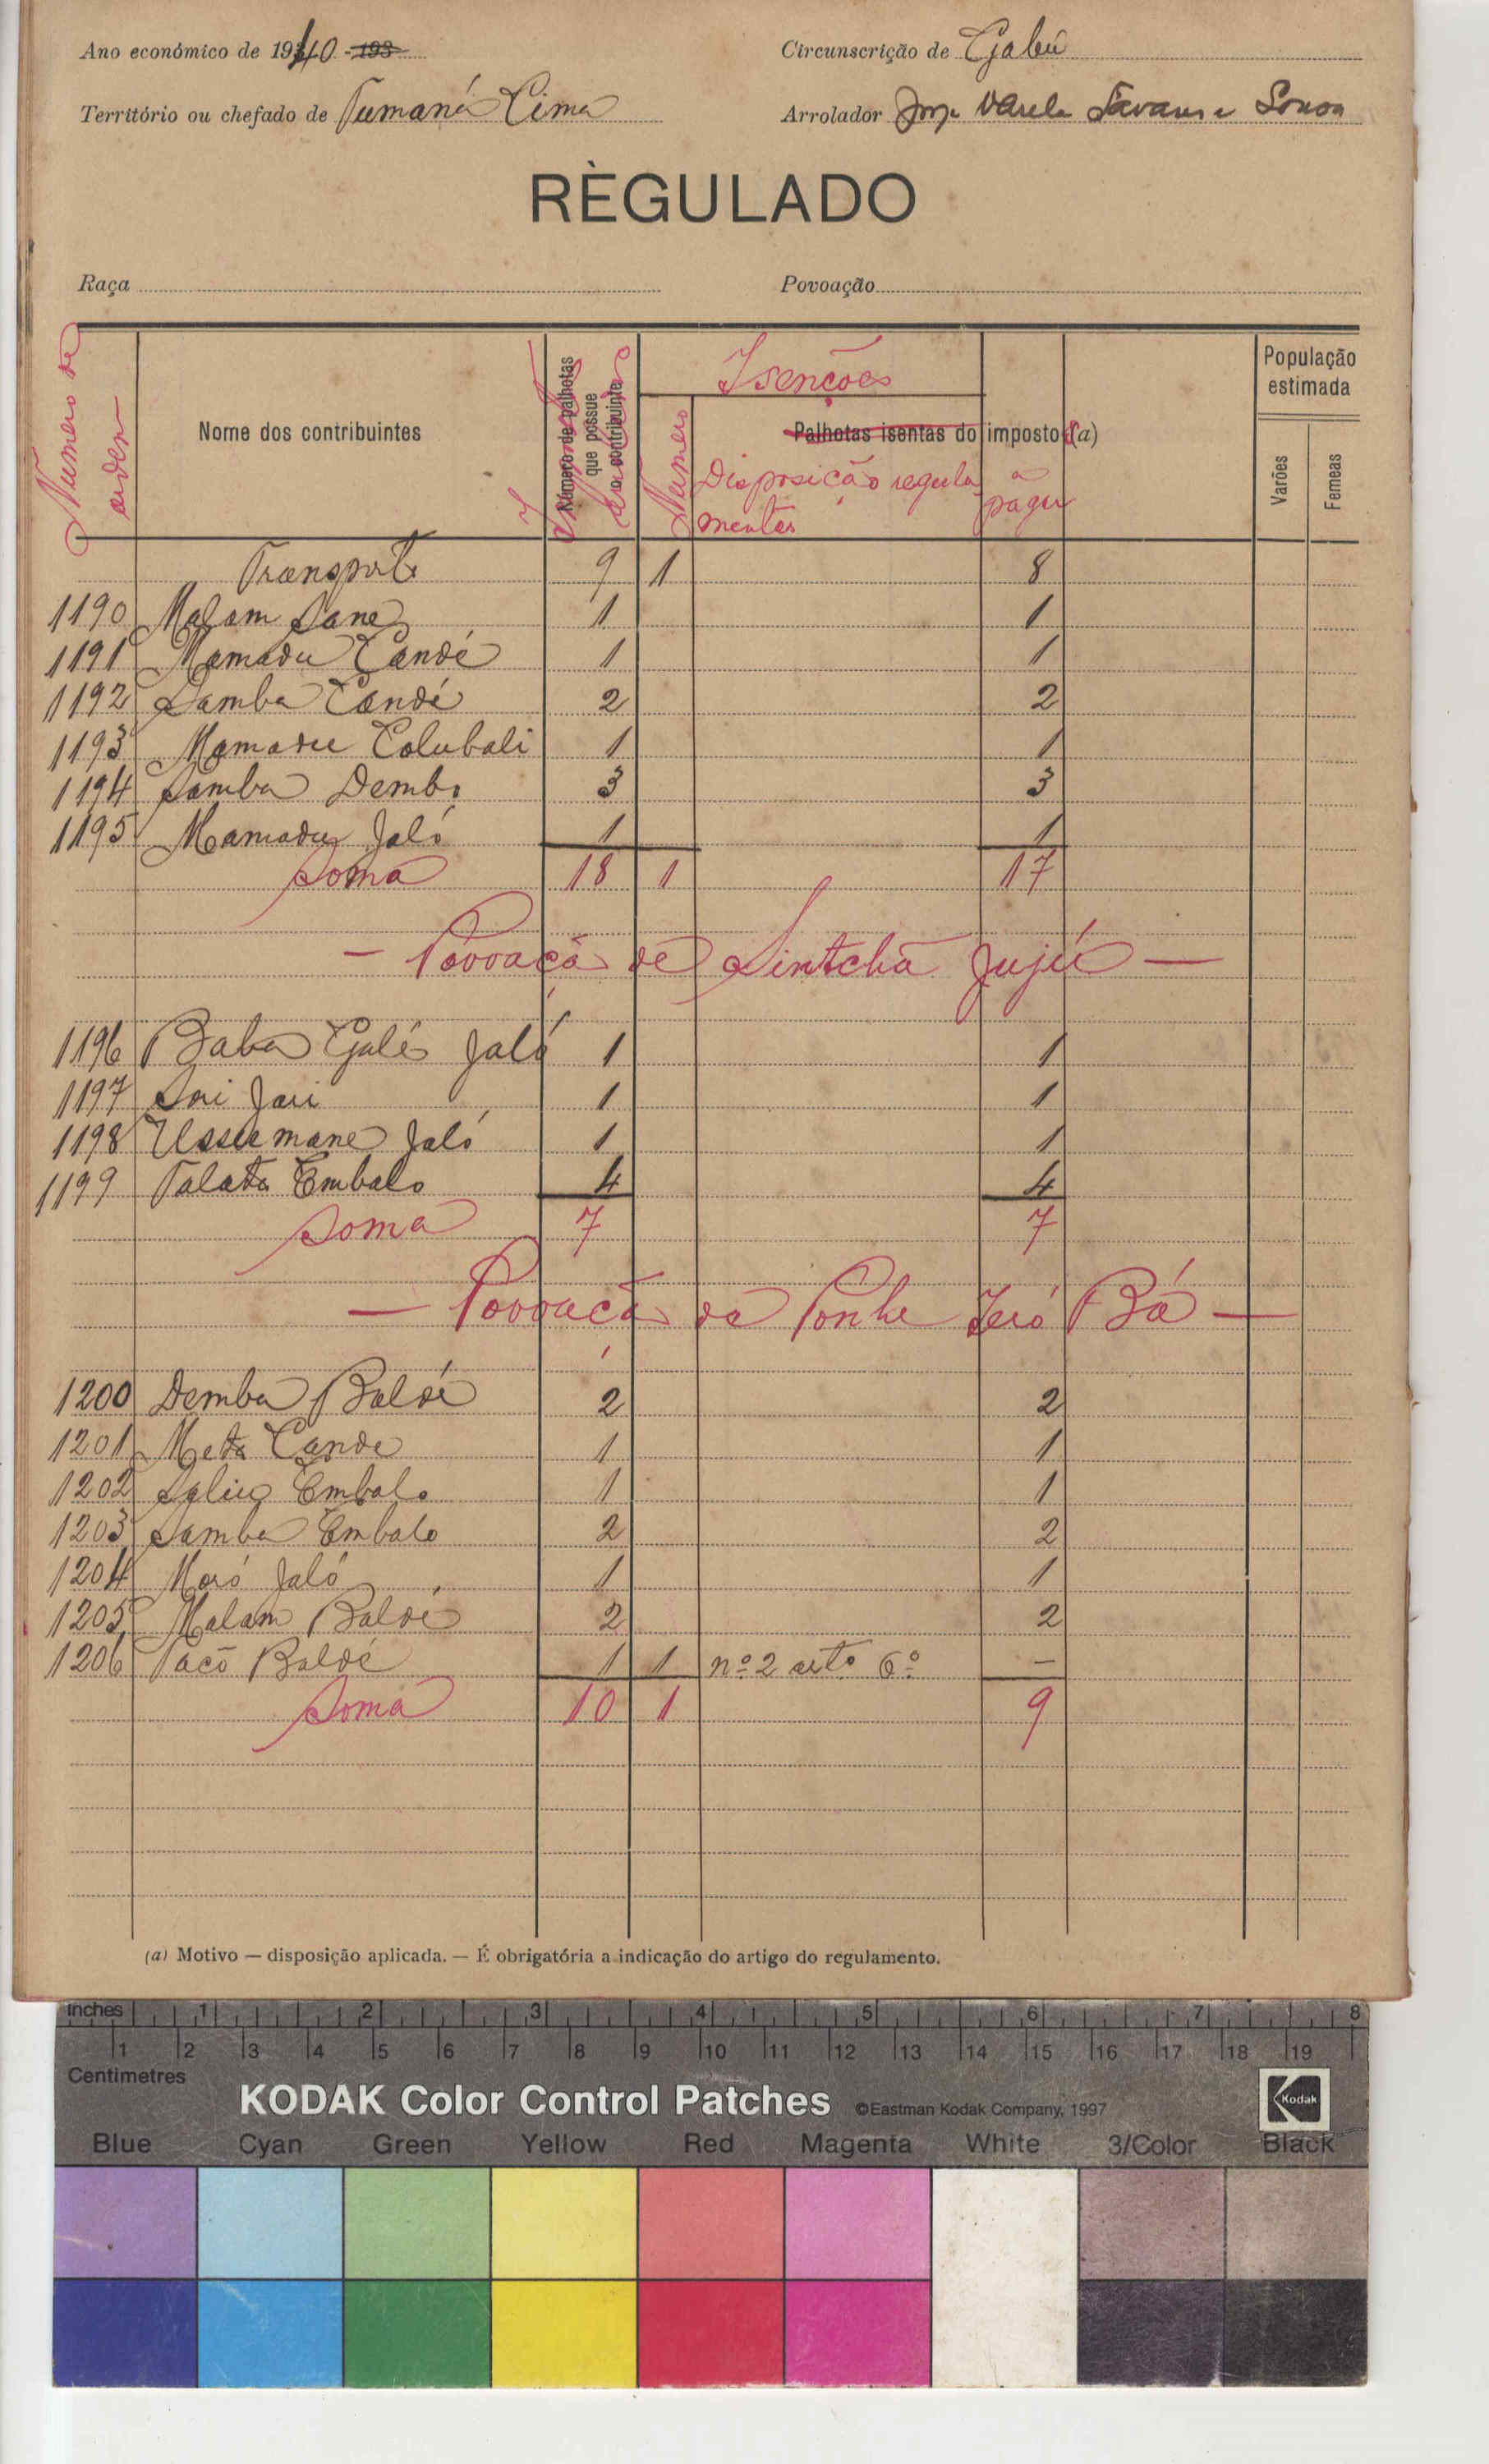 Ano económico de 1940 - 193
Circunscrição de Gabú
Território ou chefado de Tumaná Cima
Arrolador Jorge Varela Tavares e Sousa
RÈGULADO
Raça
Povoação
Numero de orden
Nome dos contribuintes
Número de palhotas que possue o contribuinte
Isenções
Numero
Palhotas isentas do imposto (a)
Disposição regula
mentar
a pagar
População estimada
Varões
Femeas
Transporte 9 1 8
1190 Malam Sane 1 1
1191 Mamadu Candé 1 1
1192 Samba Candé 2 2
1193 Mamadu Colubali 1 1
1194 Samba Dembo 3 3
1195 Mamadu Jaló 1 1
Soma 18 1 17
— Povoação de Sintchã Jujú —
1196 Baba Galé Jaló 1 1
1197 Sori Jau 1 1
1198 Ussumane Jaló 1 1
1199 Talata Embalo 4 4
Soma 7 7
— Povoação de Ponhe Jeró Bá —
1200 Demba Baldé 2 2
1201 Meta Cande 1 1
1202 Saliu Embalo 1 1
1203 Samba Embalo 2 2
1204 Moró Jaló 1 1
1205 Malam Baldé 2 2
1206 Pacô Baldé 1 1 nº 2 artº 6º —
Soma 10 1 9
(a) Motivo — disposição aplicada. — É obrigatória a indicação do artigo do regulamento.
Inches 1 2 3 4 5 6 7 8
1 2 3 4 5 6 7 8 9 10 11 12 13 14 15 16 17 18 19
Centimetres
KODAK Color Control Patches ©Eastman Kodak Company, 1997 Kodak
Blue Cyan Green Yellow Red Magenta White 3/Color Black